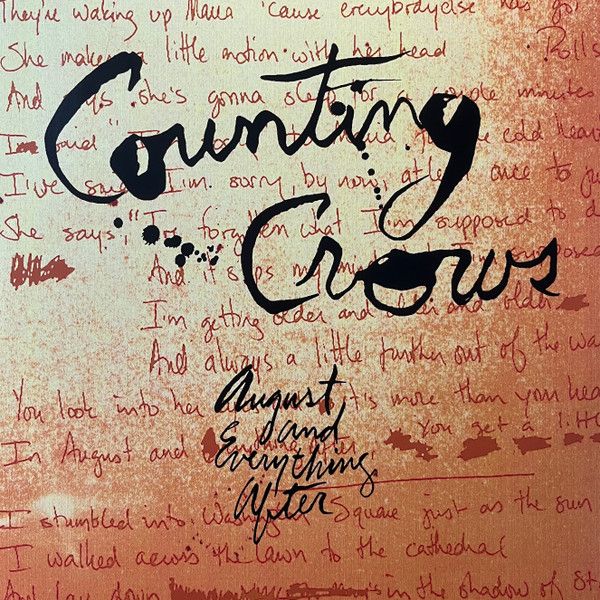 They're waking up Maria 'cause everybodyelse has go
She makes a little motion with her head
Rolls
And says she's gonna sleep for a couple minutes
Counting
I said cold heav
I've said I'm sorry, by now, at least once to ju
She says, "I've forgotten what I'm supposed to d
Crows
And it slips my supposed
I'm getting older and older and older
And always a little further out of the wa
August
You look into her it's more than your hea
and
In August and You get a litt
Everything
After
I stumbled into Washington Square just as the sun
I walked across the lawn to the cathedral
And lay down in the shadow of St